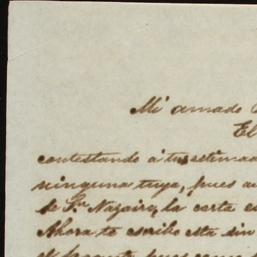 Mi amado
El
contestando á tu estimad
ninguna tuya, pues a
de Sn. Nazaire, la carta e
Ahora te escribo esta sin